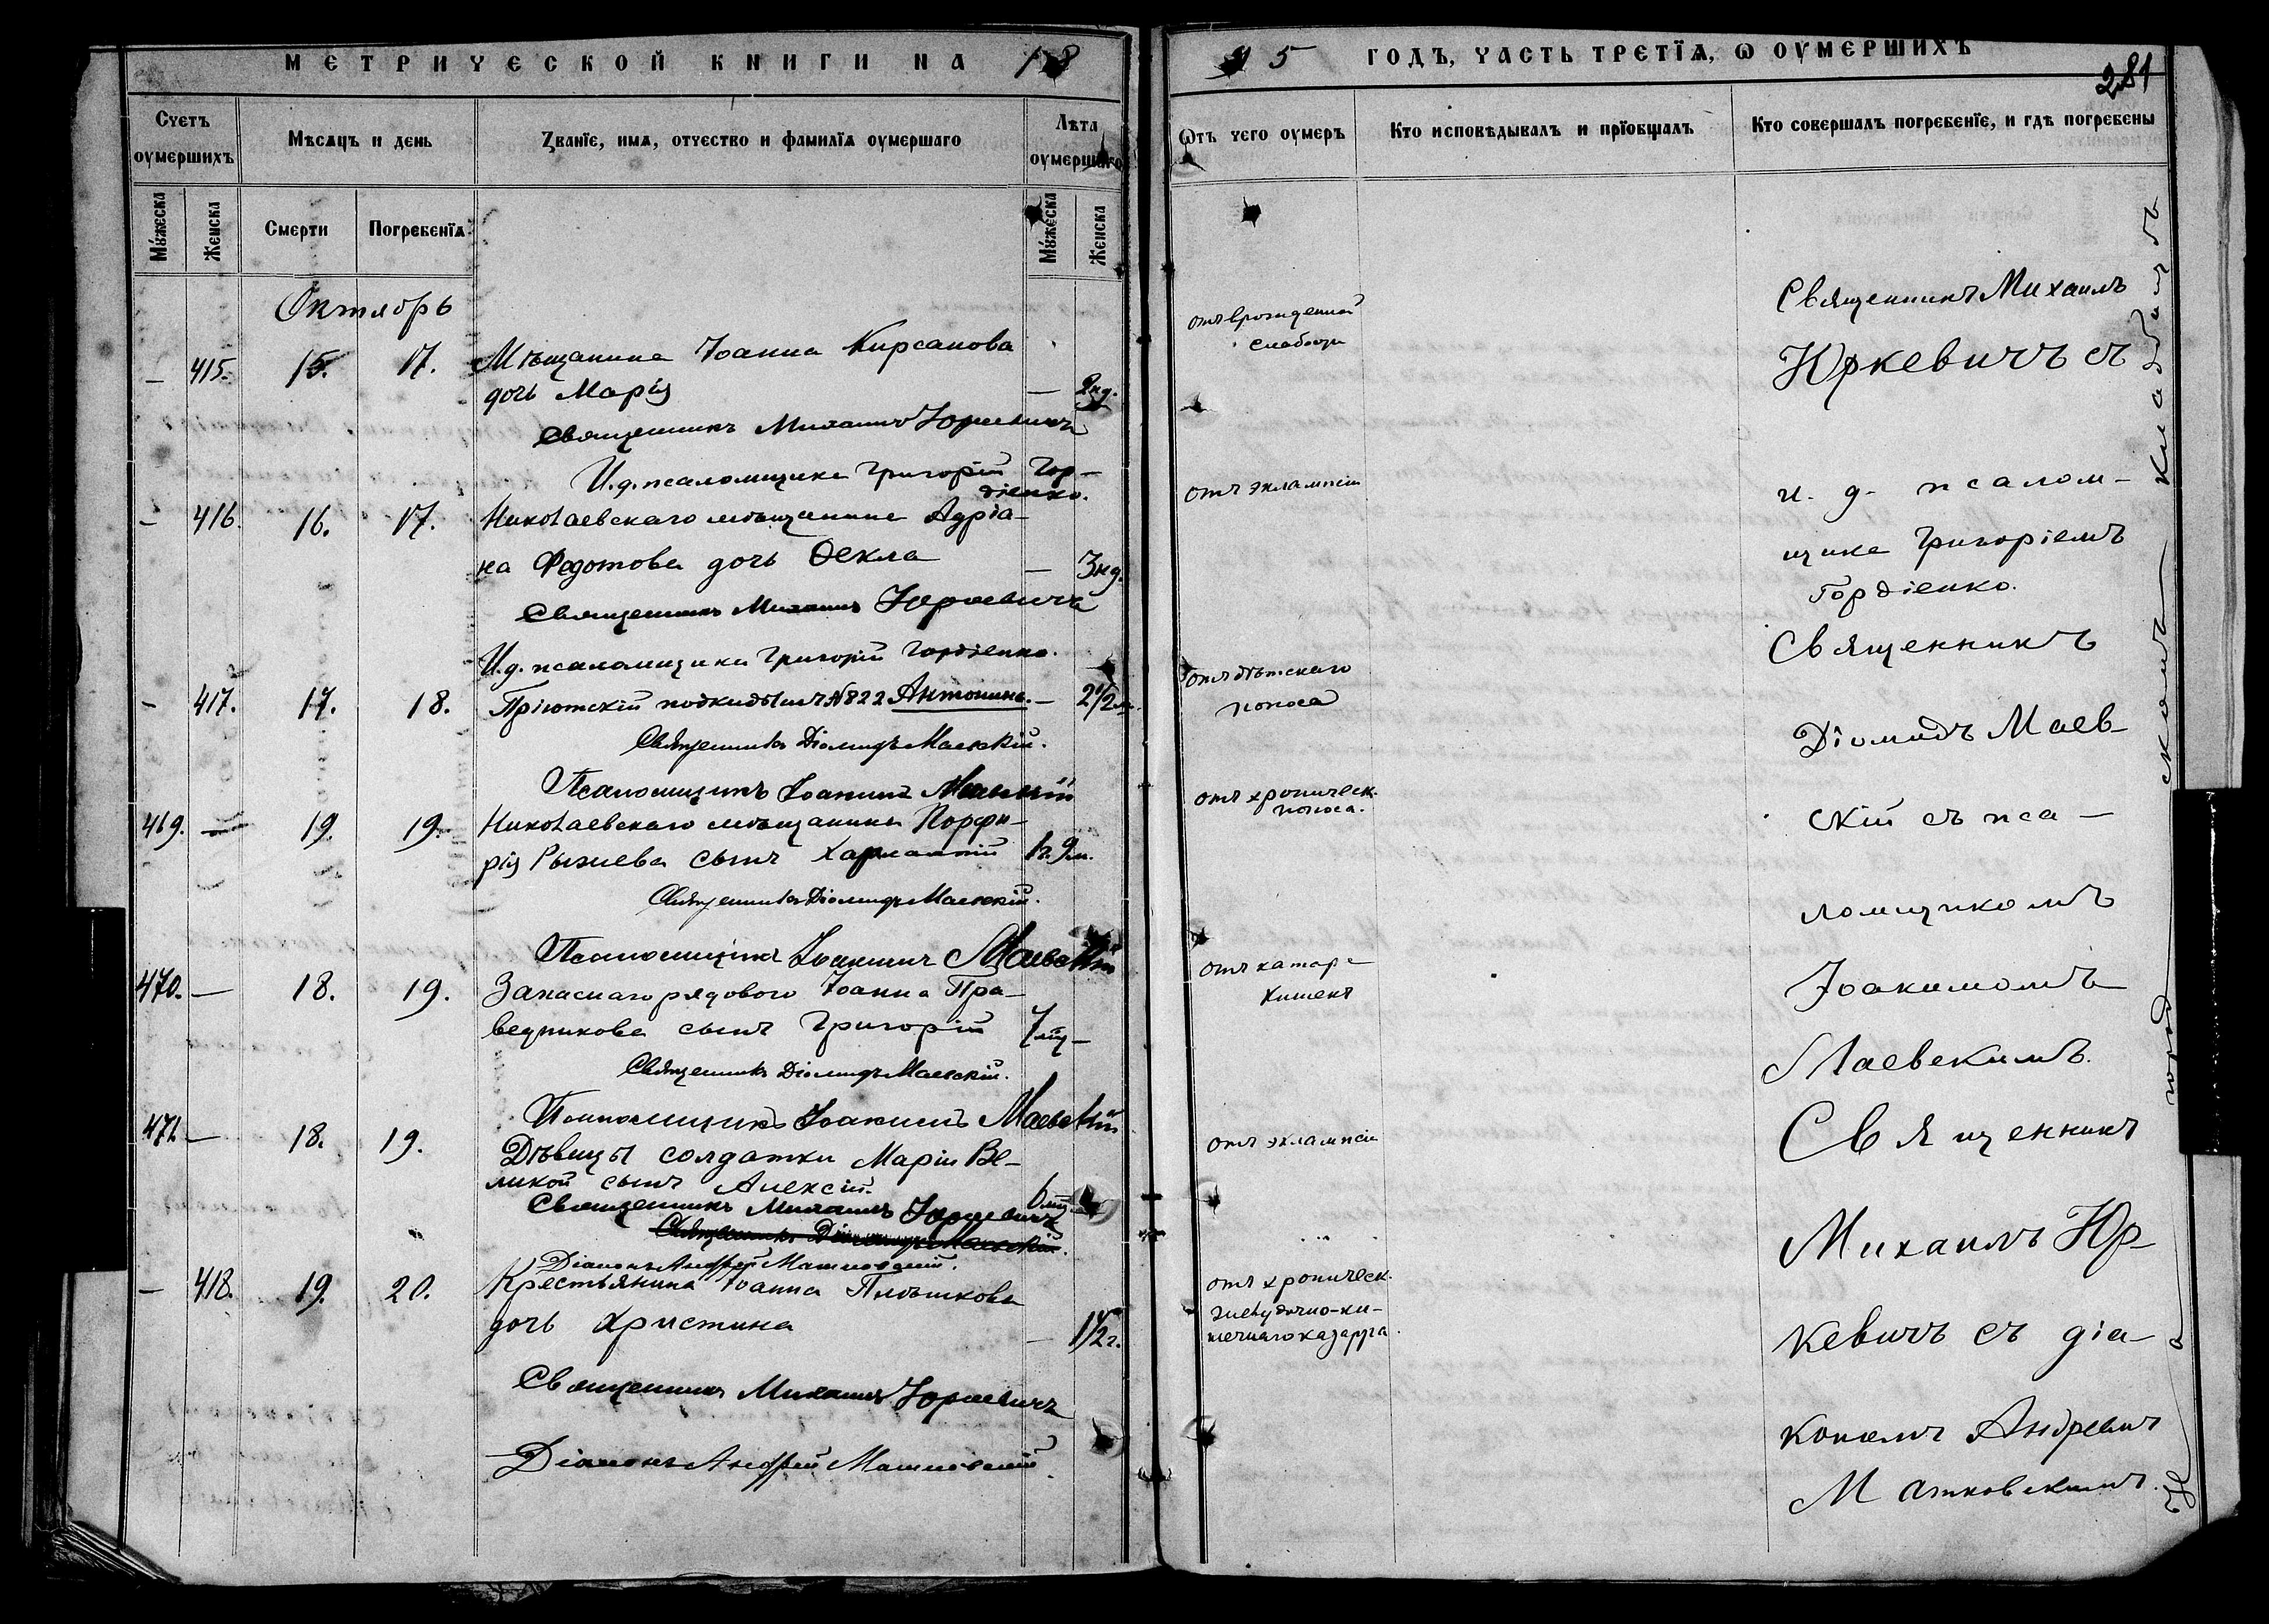 МЕТРИЧЕСКОЙ КНИГИ НА 18
95 ГОДЪ, ЧАСТЬ ТРЕТІЯ, Ѡ ОУМЕРШИХЪ
281
Счетъ оумершихъ
Мѣсяцъ и день
Званіе, имя, отчество и фамилія оумершаго
Лѣта оумершаго
Мужеска
Женска
Смерти
Погребенія
Мужеска
Женска
Октябрь
— 415. 15. 17. Мѣщанина Іоанна Кирсанова
дочь Марія — 2 нд.
Священникъ Михаилъ Юркевичъ
И.д. псаломщика Григорій Гор-
діенко.
— 416. 16. 17. Николаевскаго мѣщанина Адріа-
на Федотова дочь Ѳекла — 3 нд.
Священникъ Михаилъ Юркевичъ
И.д. псаломщика Григорій Гордіенко.
— 417. 17. 18. Пріютскій подкидышъ №822 Антонина. — 2½ м.
Священникъ Діомидъ Маевскій.
Псаломщикъ Іоакимъ Маевскій
469. — 19. 19. Николаевскаго мѣщанина Порфи-
рія Рыжева сынъ Харлампій 1 г. 9 м.
Священникъ Діомидъ Маевскій.
Псаломщикъ Іоакимъ Маевскій
470. — 18. 19. Запаснаго рядового Іоанна Пра-
ведникова сынъ Григорій 7 мц —
Священникъ Діомидъ Маевскій.
Псаломщикъ Іоакимъ Маевскій
471. — 18. 19. Дѣвицы солдатки Маріи Ве-
ликой сынъ Алексій. 6 мц
Священникъ Михаилъ Юркевичъ
Священникъ Діомидъ Маевскій.
Діаконъ Андрей Машковскій.
— 418. 19. 20. Крестьянина Іоанна
дочь Христина — 1½ г.
Священникъ Михаилъ Юркевичъ
Діаконъ Андрей Машковскій.
Ѡтъ чего оумеръ
Кто исповѣдывалъ и пріобщалъ
Кто совершалъ погребеніе, и гдѣ погребены
отъ врожденной
слабости
отъ эклампсіи
отъ дѣтскаго
поноса
отъ хроническ.
поноса.
отъ катара
кишекъ
отъ эклампсіи
отъ хроническ.
желудочно-ки-
шечнаго катарра.
Священникъ Михаилъ
Юркевичъ съ
и. д. псалом-
щика Григоріемъ
Гордіенко.
Священникъ
Діомидъ Маев-
скій съ пса-
ломщикомъ
Іоакимомъ
Маевскимъ.
Священникъ
Михаилъ Юр-
кевичъ съ діа-
кономъ Андреемъ
Машковскимъ.
На городскомъ кладбищѣ